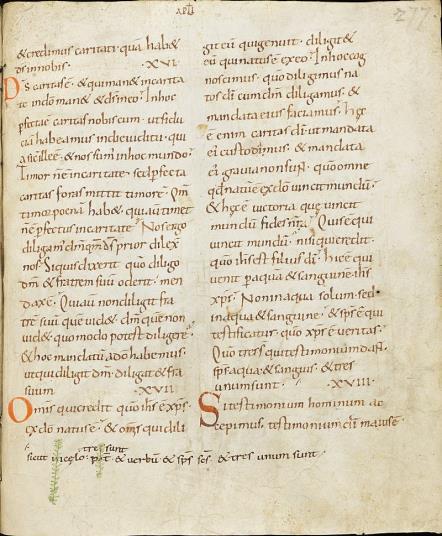 277
& credimus caritati quā hab&
ds in nobis · XVI ·
Ds caritas ē · & qui man& in carita
te in dō man& & ds in eo · In hoc
perfecta ē caritas nobiscum · ut fidu
ciā habeamus in die iudicii · qui
a sicut ille ē · & nos sum̄ in hoc mundo ·
Timor nē in caritate · sed perfecta
caritas foras mittit timorē · Qm̄
timor poenā hab& · qui aū tim&
nē perfectus in caritate · Nos ergo
diligam̄ dm̄ qm̄ ds prior dilex
nos · Siquis dixerit quō diligo
dm̄ & fratrem suū oderit · men
dax ē · Qui aū non diligit fra
trē suū quē vid& · dm̄ quē non
vid& quomodo potest diligere ·
& hoc mandatū a dō habemus ·
ut qui diligit dm̄ · diligat & fra
trē suum · XVII ·
Omis qui credit quō ihs ē xps ·
ex dō natus ē · & om̄s qui dili
git eū qui genuit · diligit &
eū qui natus ē ex eo · In hoc cog
noscimus quō diligimus na
tos dī cum dm̄ diligamus · &
mandata eius faciamus · Hęc
ē enim caritas dī ut mandata
ei custodimus · & mandata
ei gravia non sūt · quō omne
qd natū ē ex dō vincit mundū ·
& hęc ē victoria quę vincit
mundū fides nr̄a · Quis ē qui
vincit mundū · nisi qui credit ·
quō ihs est filius dī · Hic ē qui
venit p aquā & sanguinē · ihs
xps · Non in aqua solum · sed
in aqua & sanguine · & sps ē qui
testificatur · quō xps ē veritas ·
Quō tres s qui testimoniū dant ·
sps aqua & sanguis · & tres
unum sunt · XVIII ·
Si testimonium hominum ac
cepimus · testimonium dī maius ē ·
tres sunt
sicut in cęlo · pat̄ & verbū & sps scs · & tres unum sunt ·